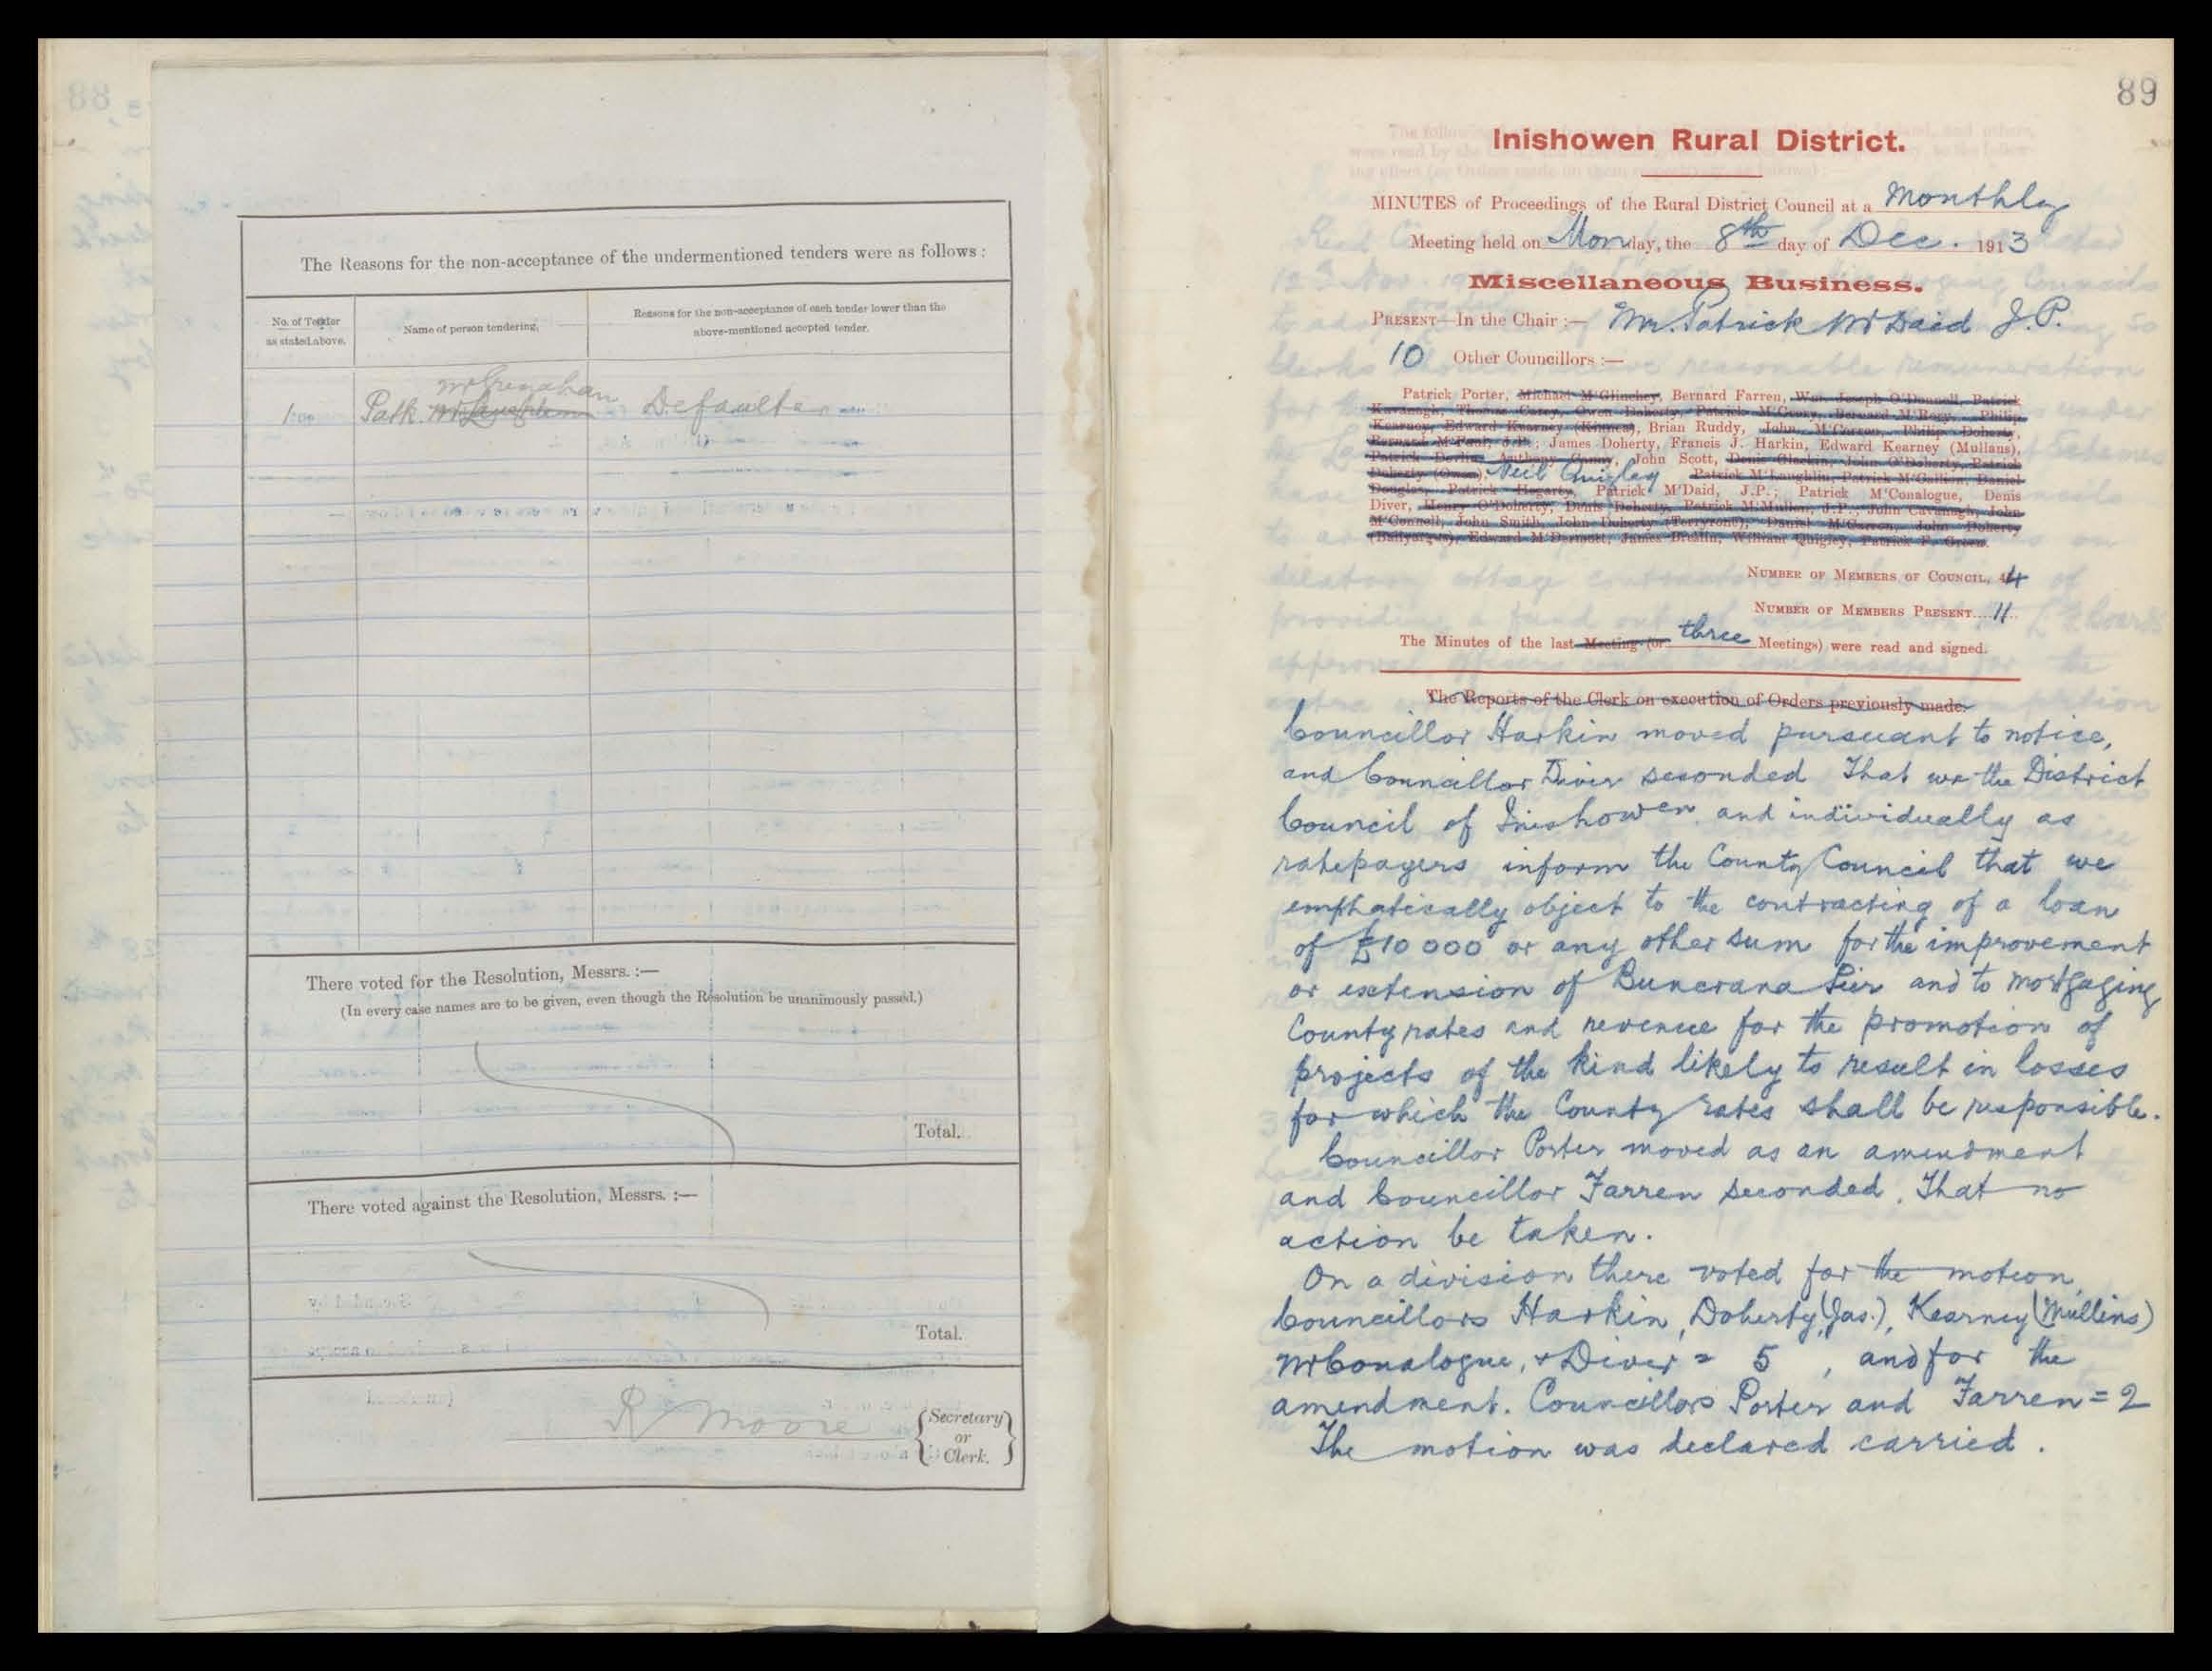 The Reasons for the non-acceptance of the undermentioned tenders were as follows :
No. of Tender
as stated above.
Name of person tendering.
Reasons for the non-acceptance of each tender lower than the
above-mentioned accepted tender.
McGrenahan
1 Patk. McLaughlin Defaulter
There voted for the Resolution, Messrs. :—
(In every case names are to be given, even though the Resolution be unanimously passed.)
Total.
There voted against the Resolution, Messrs. :—
Total.
R Moore
Secretary
or
Clerk.
89
Inishowen Rural District.
MINUTES of Proceedings of the Rural District Council at a Monthly
Meeting held on Monday, the 8th day of Dec. 1913
Miscellaneous Business.
PRESENT—In the Chair :— Mr. Patrick McDaid J.P.
10 Other Councillors :—
Patrick Porter, Michael M'Glinchey, Bernard Farren, Wm. Joseph O'Donnell, Patrick
Kavanagh, Thomas Carey, Owen Doherty, Patrick M'Canny, Bernard M'Rory, Philip
Kearney, Edward Kearney (Kinnea), Brian Ruddy, John M'Carron, Philip Doherty,
Bernard M'Paul, J.P.; James Doherty, Francis J. Harkin, Edward Kearney (Mullans),
Patrick Devlin, Anthony Canny, John Scott, Denis Glackin, John O'Doherty, Patrick
Doherty (Owen), Neil Quigley Patrick M'Laughlin, Patrick M'Callion, Daniel
Douglas, Patrick Hegarty, Patrick M'Daid, J.P.; Patrick M'Conalogue, Denis
Diver, Henry O'Doherty, Denis Doherty, Patrick M'Mullan, J.P.; John Cavanagh, John
M'Connell, John Smith, John Doherty (Terryrone), Daniel M'Carron, John Doherty
(Ballyargus), Edward M'Dermott, James Breslin, William Quigley, Patrick F. Green.
NUMBER OF MEMBERS OF COUNCIL, 44
NUMBER OF MEMBERS PRESENT... 11
The Minutes of the last Meeting (or three Meetings) were read and signed.
The Reports of the Clerk on execution of Orders previously made.
Councillor Harkin moved pursuant to notice,
and Councillor Diver seconded That we the District
Council of Inishowen and individually as
ratepayers inform the County Council that we
emphatically object to the contracting of a loan
of £10 000 or any other sum for the improvement
or extension of Buncrana Pier and to mortgaging
County rates and revenue for the promotion of
projects of the kind likely to result in losses
for which the County rates shall be responsible.
Councillor Porter moved as an amendment
and Councillor Farren seconded. That no
action be taken.
On a division there voted for the motion
Councillors Harkin, Doherty (Jas.), Kearney (Mullins)
McConalogue, + Diver = 5, and for the
amendment. Councillors Porter and Farren = 2
The motion was declared carried.